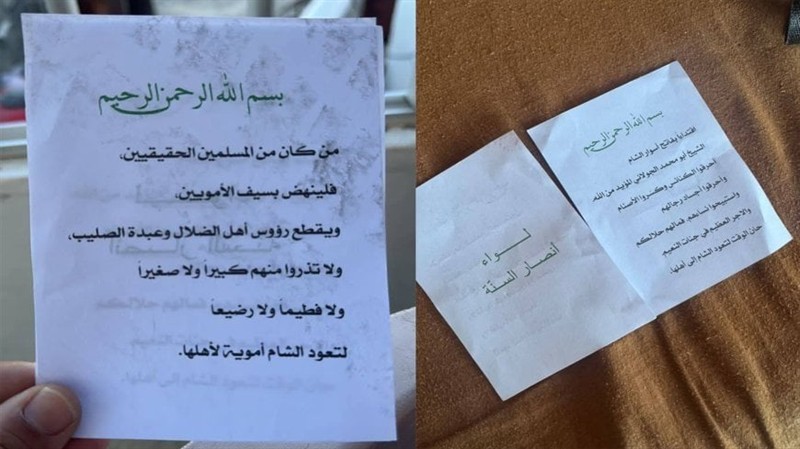 بسم الله الرحمن الرحيم
من كان من المسلمين الحقيقيين،
فلينهض بسيف الأمويين،
ويقطع رؤوس أهل الضلال وعبدة الصليب،
ولا تذروا منهم كبيراً ولا صغيراً
ولا فطيماً ولا رضيعاً
لتعود الشام أموية لأهلها.
بسم الله الرحمن الرحيم
اقتداءاً بفاتح أسوار الشام
الشيخ أبو محمد الجولاني المؤيد من الله
أحرقوا الكنائس وكسروا الأصنام
وأحرقوا أجساد رجالهم
واستبيحوا نساءهم، فمالهم حلالكم
والاجر العظيم في جنات النعيم
حان الوقت لتعود الشام إلى أهلها.
لـــواء
أنصار السنّة